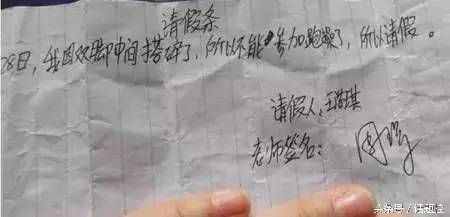 请假条
28日，我因双脚中间搭碎了，所以不能参加跑操了，所以请假。
请假人：王
老师签名：周
头条号/